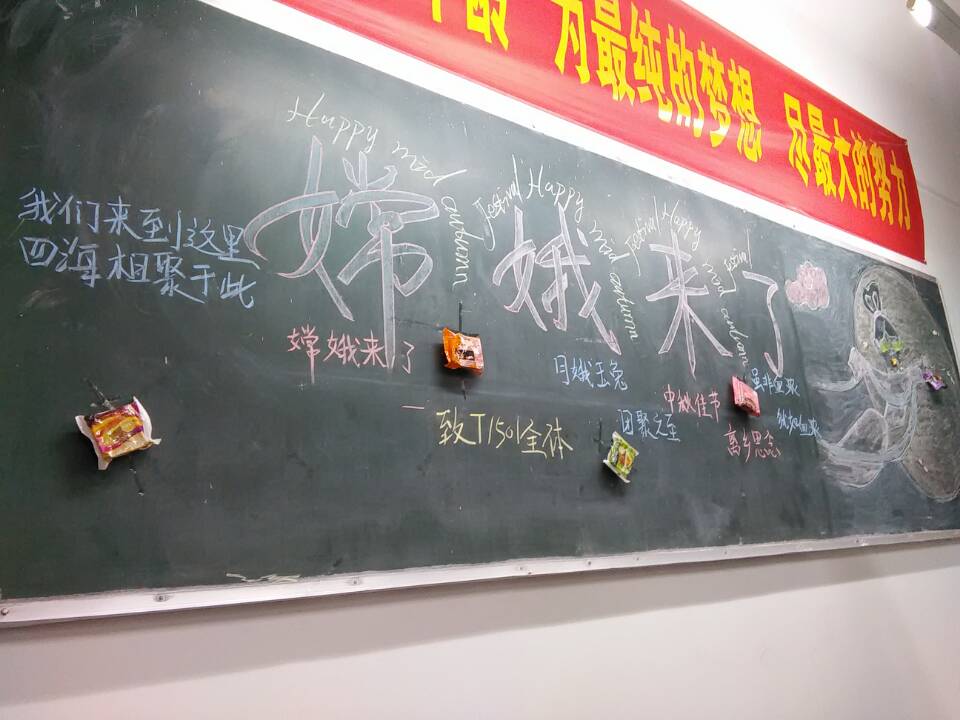 为最纯的梦想 尽最大的努力
Happy mid autumn festival Happy mid autumn festival Happy mid autumn festival
嫦娥来了
我们来到这里
四海相聚于此
嫦娥来了
月娥玉兔
中秋佳节
虽非血聚
一致T1501全体
团聚之至
离乡思念